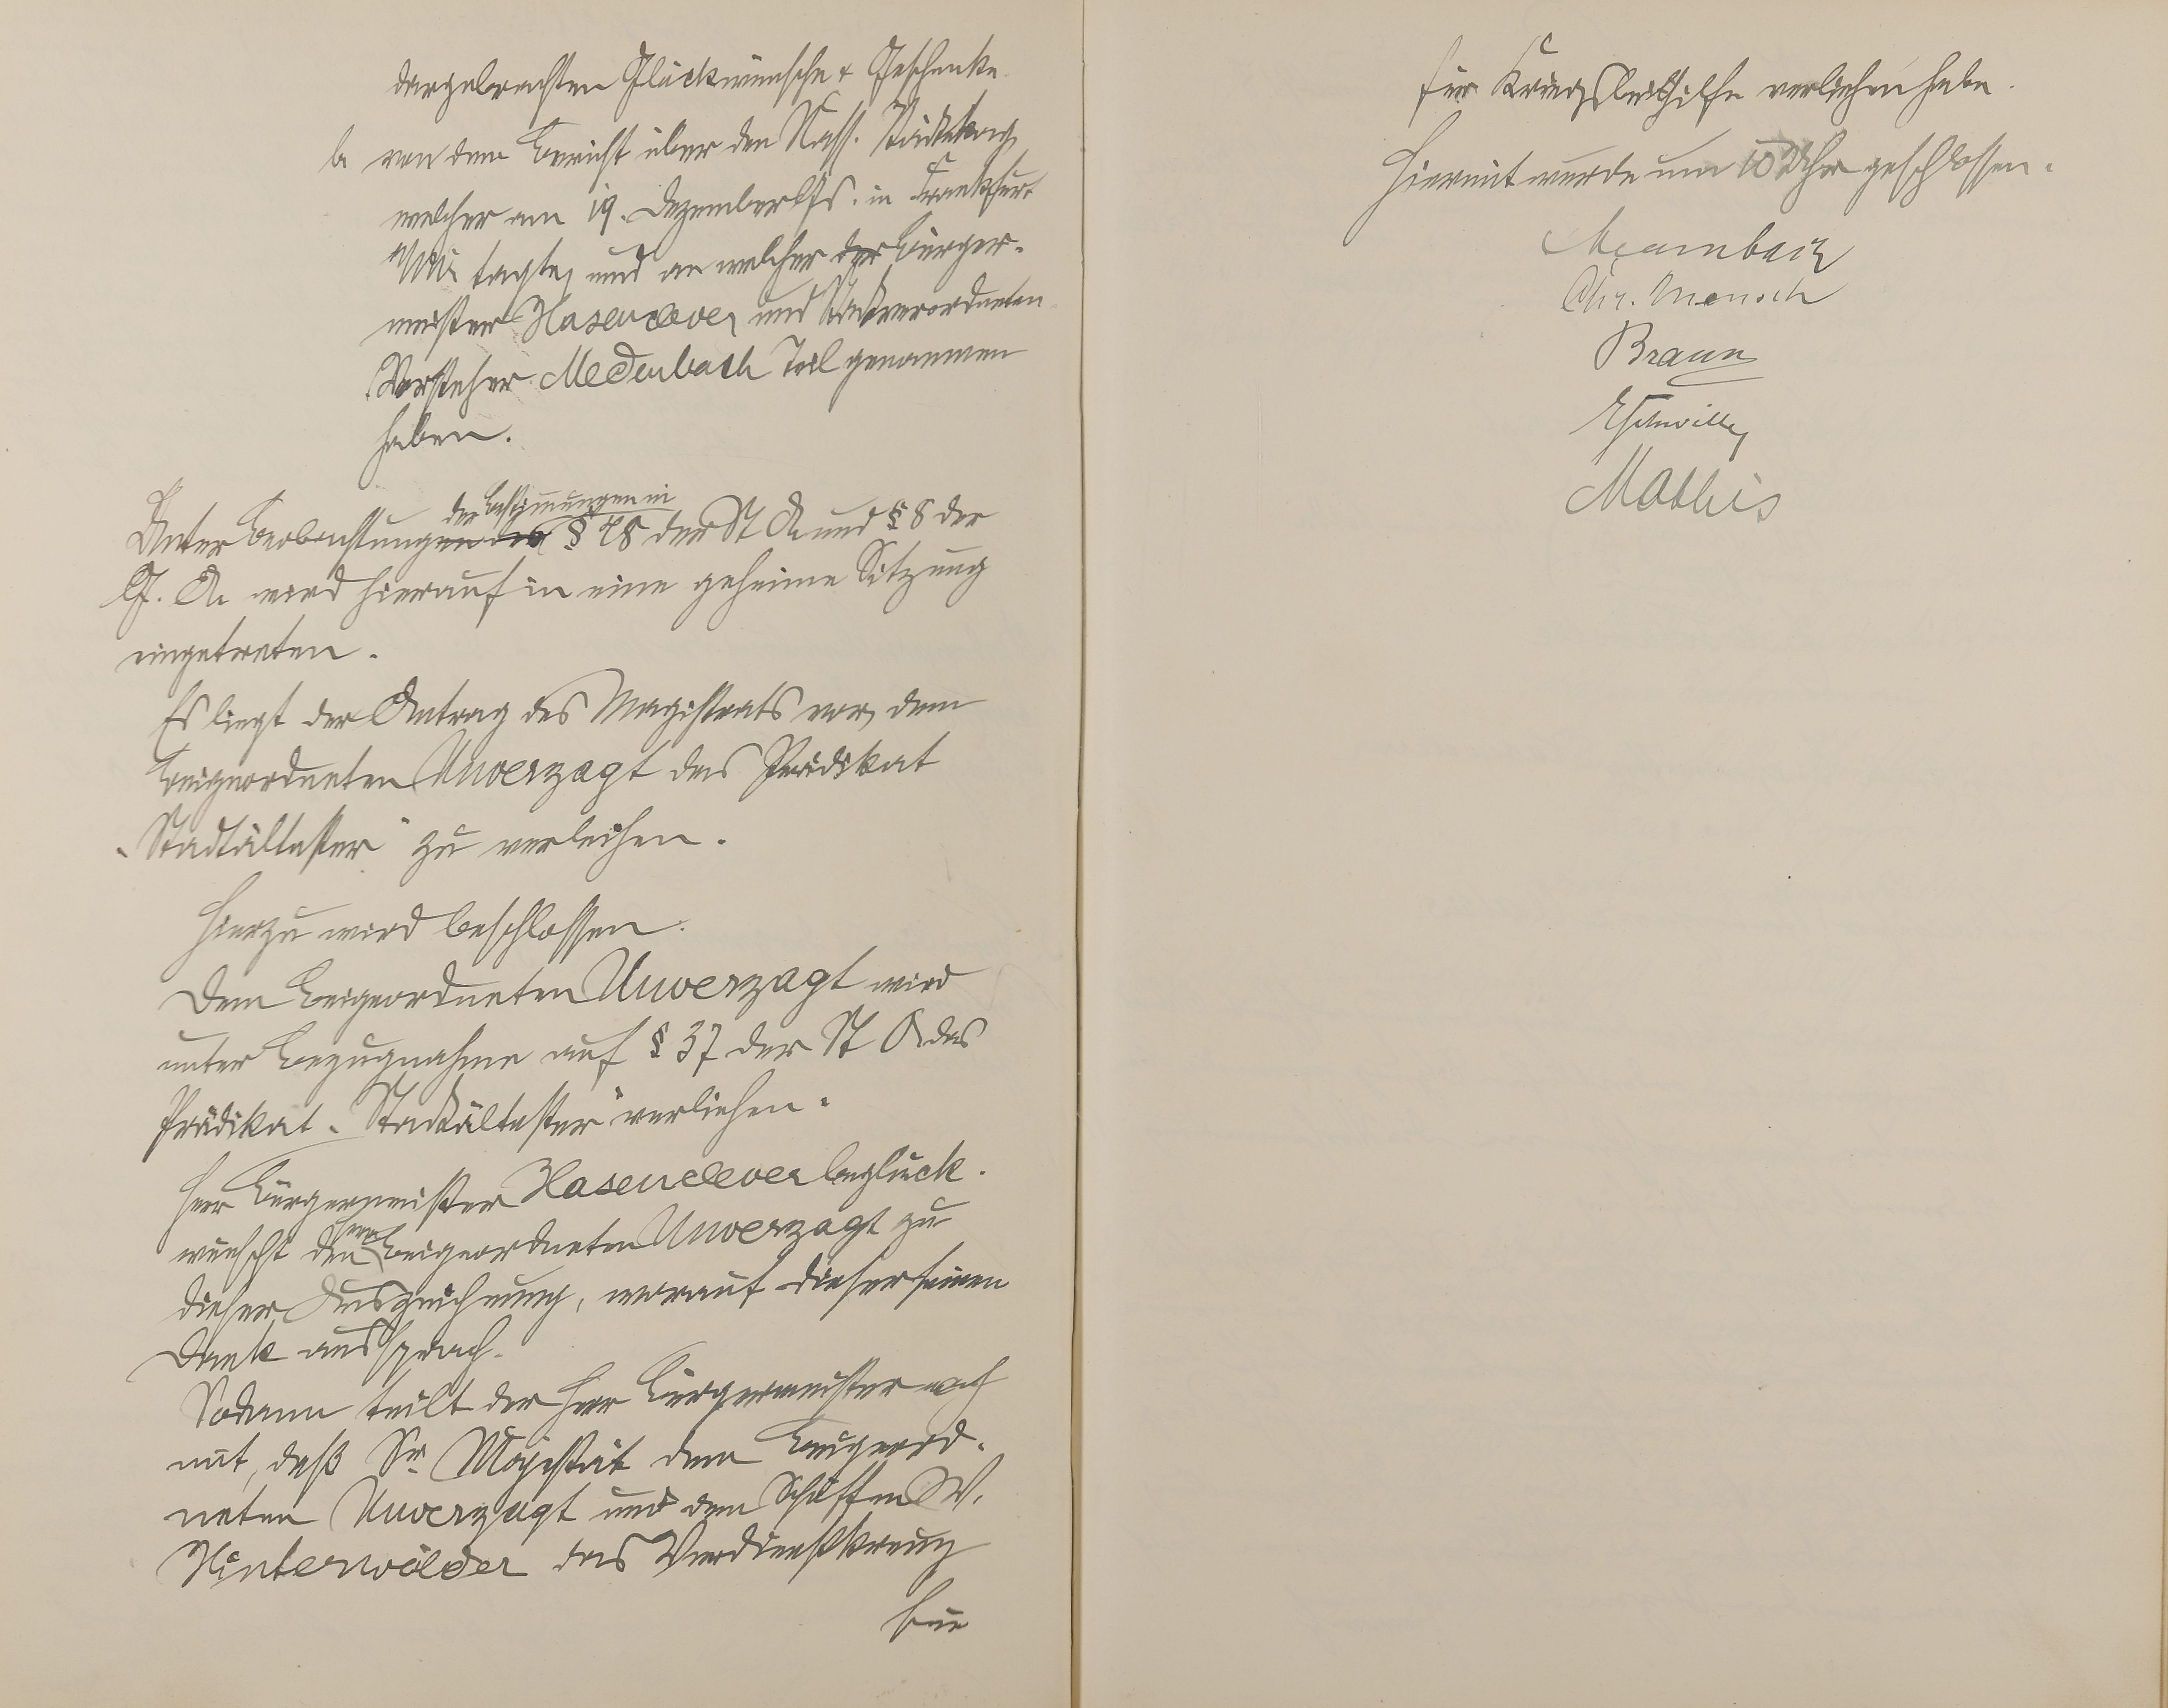 dargebrachten Glückwünsche & Geschenke.
b von dem Bericht über den Nass. Städtetag,
welcher am 19. Dezember lfs. in Frankfurt
a/M tagte, und an welcher der Bürger-
meister Hasenclever und Stadtverordneten
Vorsteher Medenbach Teil genommen
haben.
der Bestimmungen in
Unter Beobachtungen des § 48 der St O. und § 8 der
G. O. wird hierauf in eine geheime Sitzung
eingetreten.
Es liegt der Antrag des Magistrats vor, dem
Beigeordneten Unverzagt das Prädikat
„Stadtältester" zu verleihen.
Hierzu wird beschlossen.
Dem Beigeordneten Unverzagt wird
unter Bezugnahme auf § 37 der St O das
Prädikat „Stadtältester" verliehen.
Herr Bürgermeister Hasenclever beglück-
Herrn
wünscht den Beigeordneten Unverzagt zu
dieser Auszeichnung, worauf dieser seinen
Dank aussprach.
Sodann teilt der Herr Bürgermeister noch
mit, daß Sr. Majestät dem Beigeord-
neten Unverzagt und dem Schöffen W.
Hinterwälder das Verdienstkreuz
für
für Kriegsbeihilfe verliehen habe.
Hiermit wurde um 10 Uhr geschlossen.
Chr. Mensch
Braun
Mathis